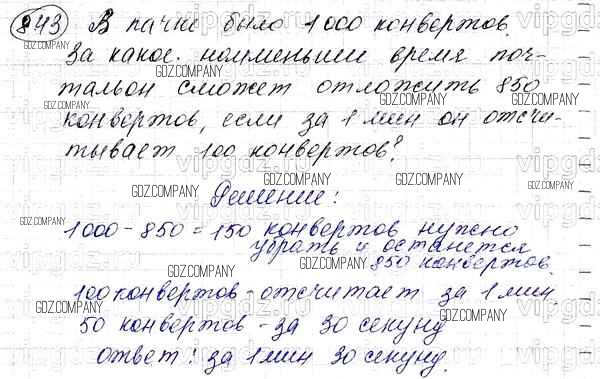 843 В пачке было 1000 конвертов.
За какое наименьшее время поч-
тальон сможет отложить 850
конвертов, если за 1 мин он отсчи-
тывает 100 конвертов?
Решение:
1000 - 850 = 150 конвертов нужно
убрать и останется
850 конвертов.
100 конвертов - отсчитает за 1 мин
50 конвертов - за 30 секунд
ответ: за 1 мин 30 секунд.
GDZ.COMPANY
vipgdz